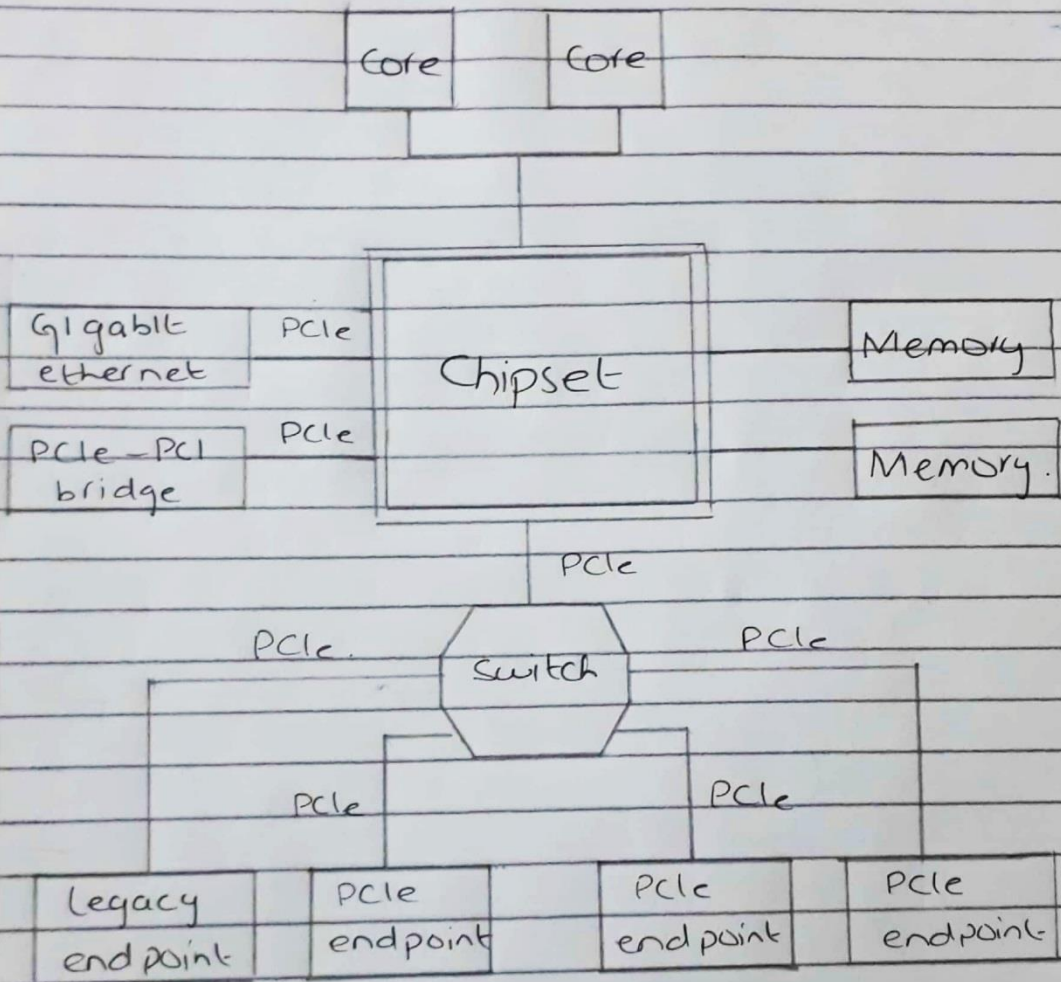 Core
Core
Gigabit
ethernet
PCIe
Chipset
Memory
PCIe-PCI
bridge
PCIe
Memory.
PCIe
PCIe.
Switch
PCIe
PCIe
PCIe
Legacy
endpoint
PCIe
endpoint
PCIe
endpoint
PCIe
endpoint